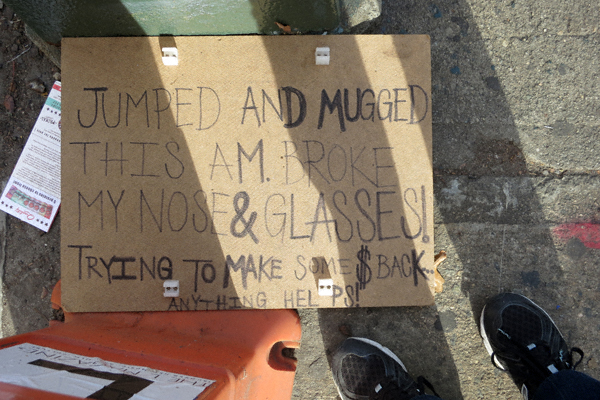 JUMPED AND MUGGED
THIS AM. BROKE
MY NOSE & GLASSES!
TRYING TO MAKE SOME $ BACK..
ANYTHING HELPS!